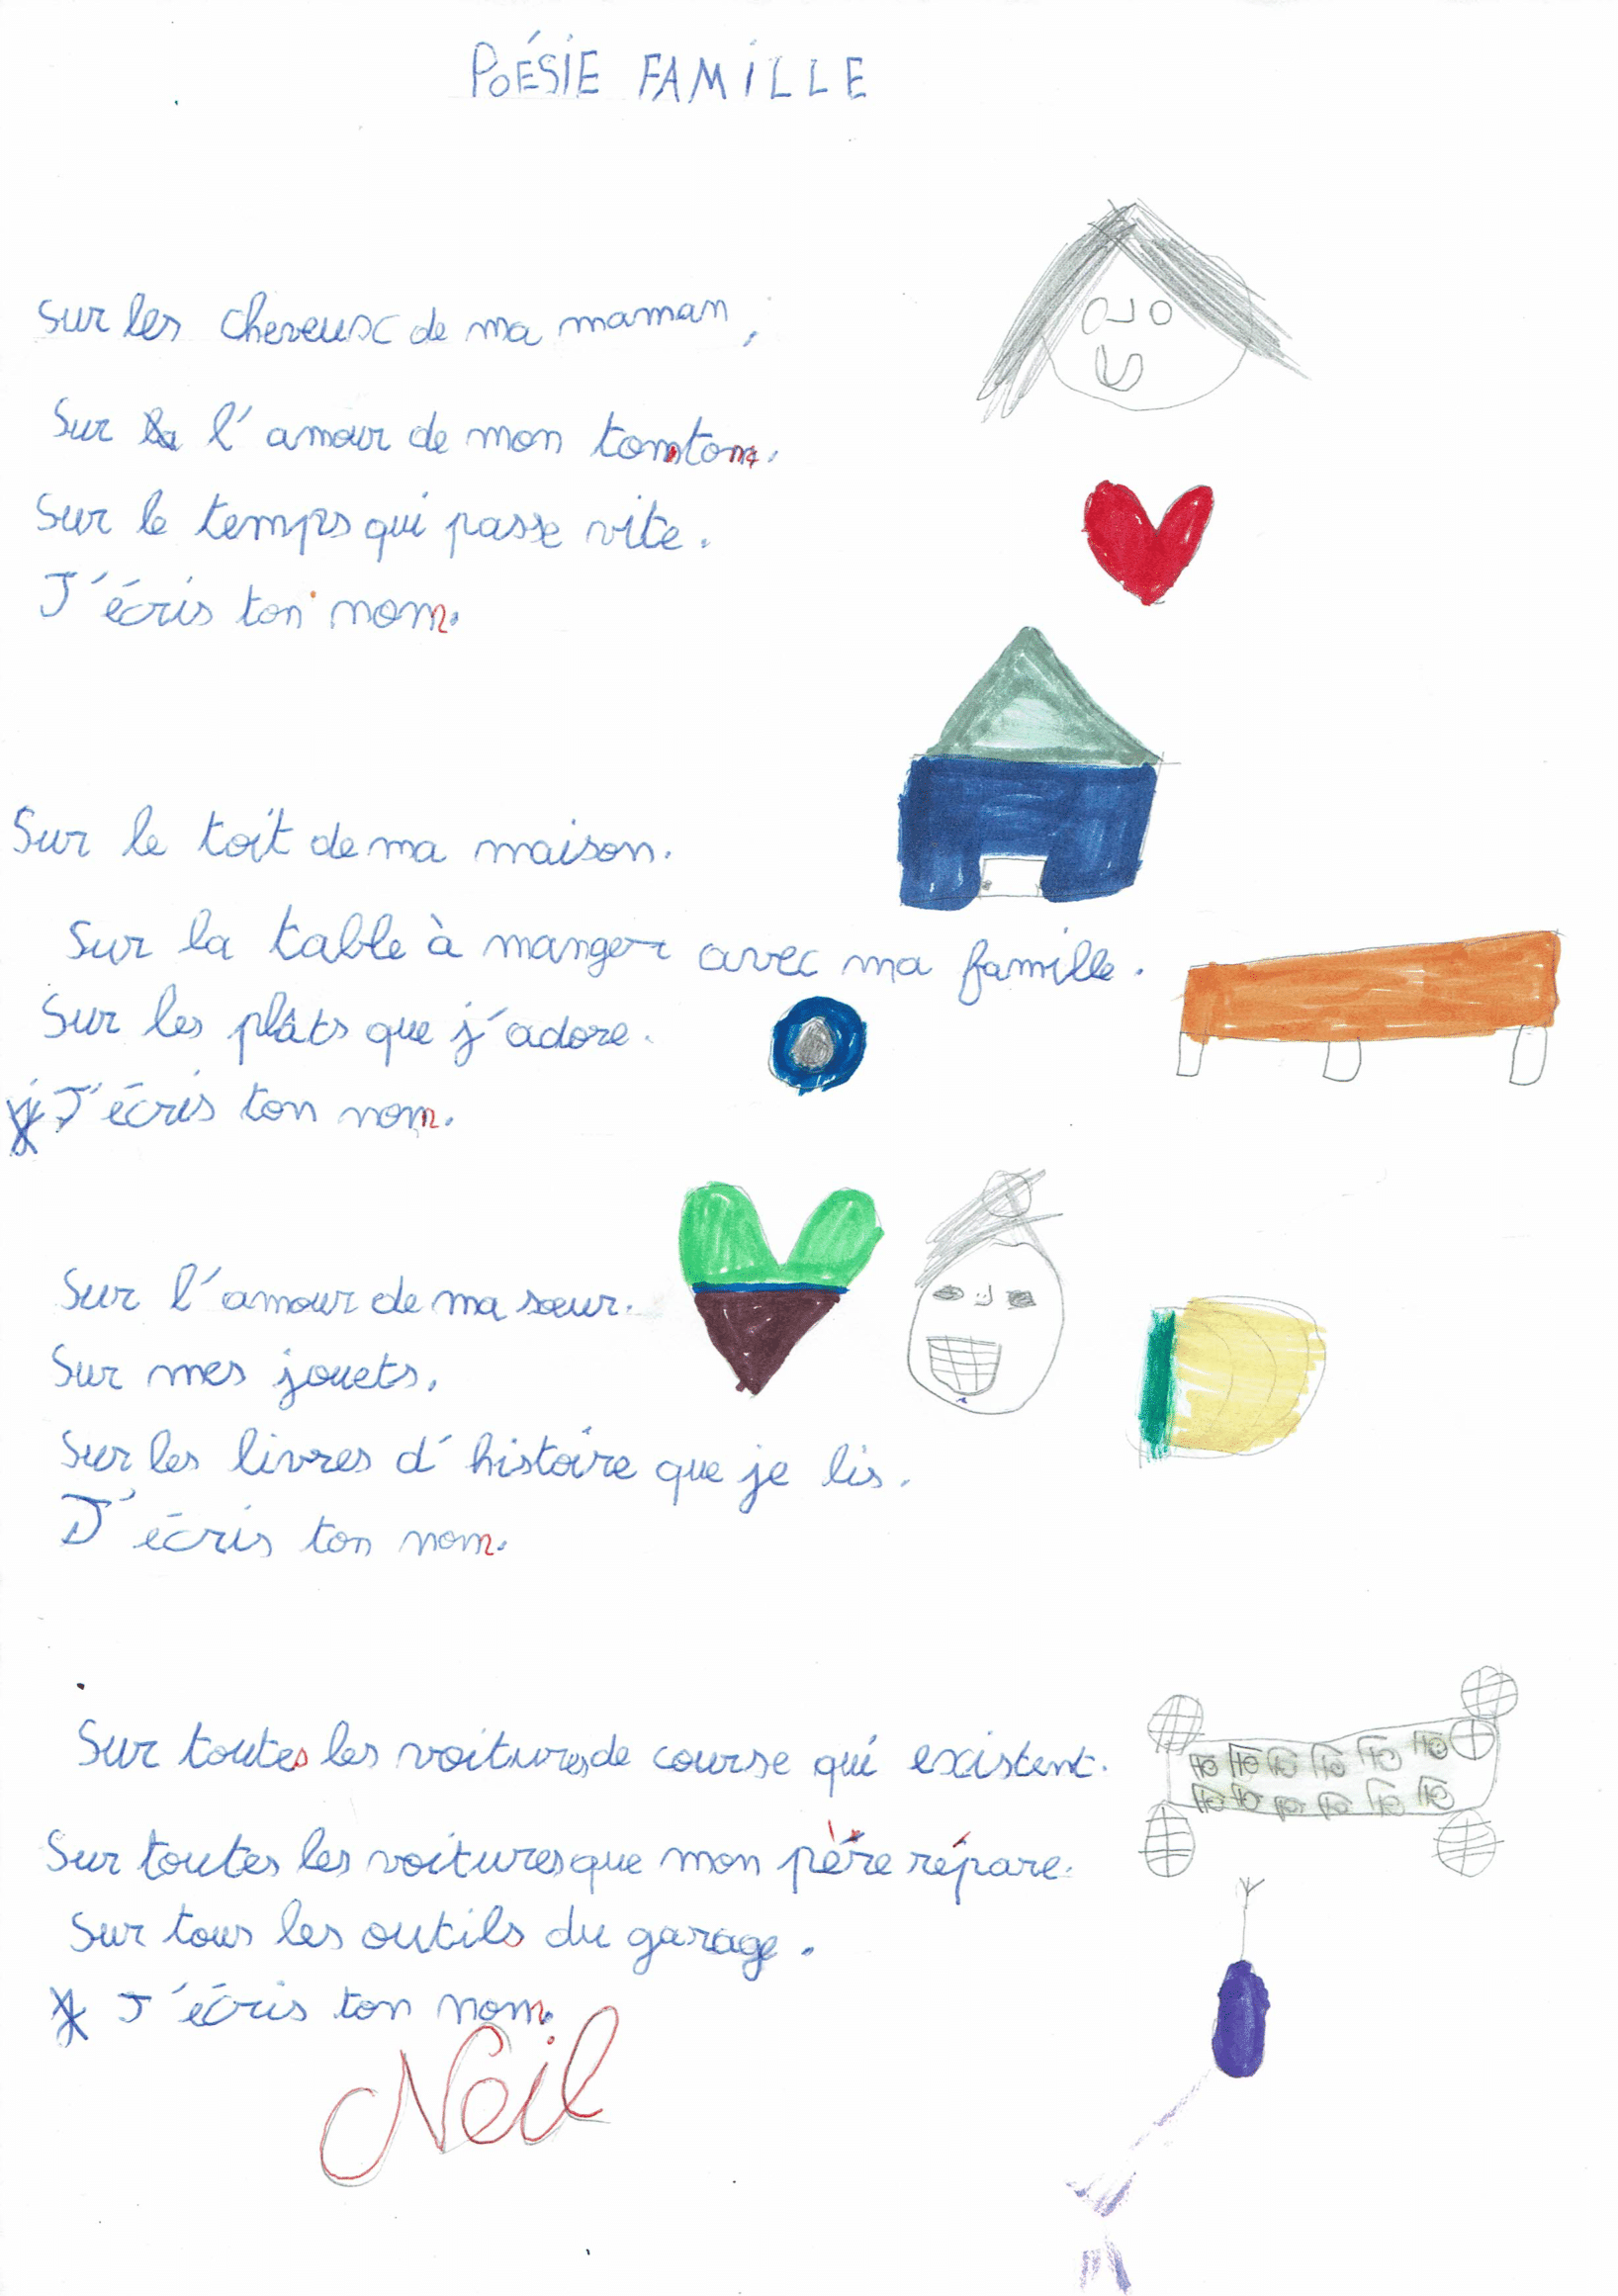 POÉSIE FAMILLE
Sur les cheveux de ma maman,
Sur l'amour de mon tonton.
Sur le temps qui passe vite.
J'écris ton nom.
Sur le toit de ma maison.
Sur la table à manger avec ma famille.
Sur les plâts que j'adore.
J'écris ton nom.
Sur l'amour de ma sœur.
Sur mes jouets.
Sur les livres d'histoire que je lis.
J'écris ton nom.
Sur toutes les voitures de course qui existent.
Sur toutes les voitures que mon père répare.
Sur tous les outils du garage.
J'écris ton nom.
Neil